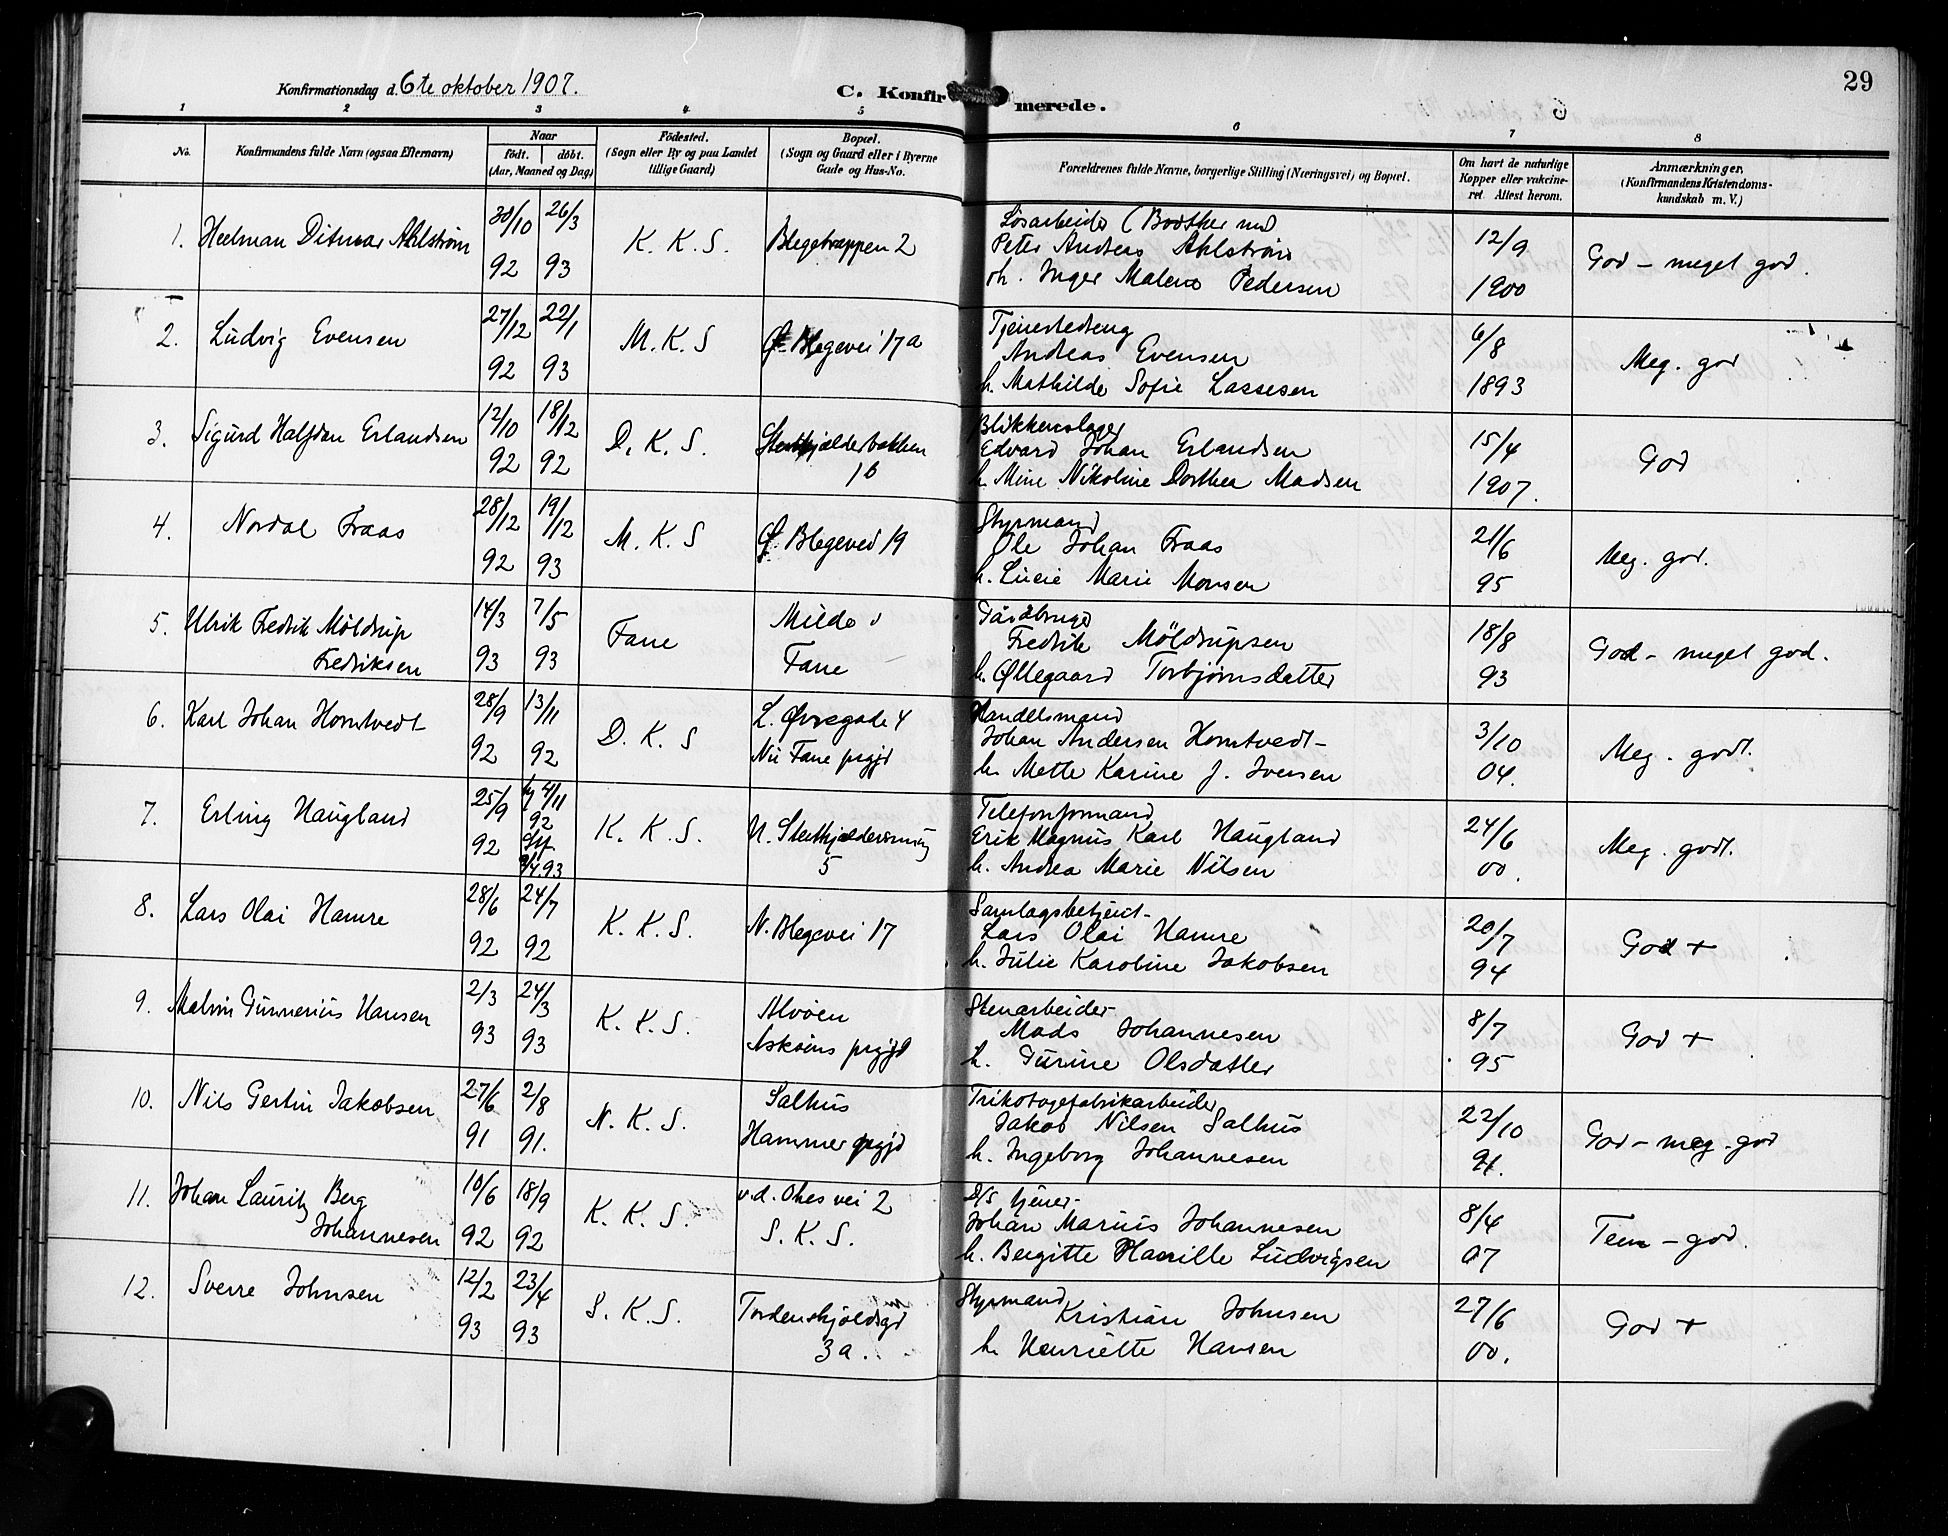 Konfirmationsdag d. 6te oktober 1907.
C. Konfirmerede.
29
1 2 3 4 5 6 7 8
No.
Konfirmandens fulde Navn (ogsaa Efternavn)
Naar
födt. döbt.
(Aar, Maaned og Dag)
Födested.
(Sogn eller By og paa Landet
tillige Gaard)
Bopæl.
(Sogn og Gaard eller i Byerne
Gade og Hus-No.
Forældrenes fulde Navne, borgerlige Stilling (Næringsvei) og Bopæl.
Om havt de naturlige
Kopper eller vakcine-
ret. Attest herom.
Anmærkninger.
(Konfirmandens Kristendoms-
kundskab m. V.)
1. Helman Ditmar Ahlstrøm
30/10 92
26/3 93
K. K. S.
Blegetrappen 2
Løsarbeider
Peter Andreas Ahlstrøm
Inger Malene Pedersen
12/9
1900
God - meget god.
2. Ludvig Evensen
27/12 92
22/1 93
M. K. S
Ø. Blegevei 17a
Andreas Evensen
h. Mathilde Sofie Lassesen
6/8
1893
Meg. god
3. Sigurd Halfdan Erlandsen
12/10 92
18/12 92
D. K. S.
Stenkjælderbakken
1b
Blikkenslager
Edvard Johan Erlandsen
h. Mine Nikoline Dorthea Madsen
15/4
1907.
God
4. Nordal Fraas
28/12 92
19/12 93
M. K. S
Ø. Blegevei 19
Styrmand
Ole Johan Fraas
h. Lucie Marie Monsen
21/6
95
Meg. god.
5. Ulrik Fredrik Möldrup
Fredriksen
14/3 93
7/5 93
Fane
Milde
Fane
Gårdbruger
Fredrik Möldrupsen
h. Øllegaard Torbjørnsdatter
18/8
93
God - meget god.
6. Karl Johan Homtvedt
28/9 92
13/11 92
D. K. S
L. Øvregade 4
Nu Fane prgjd
Handelsmand
Johan Andersen Homtvedt
h. Mette Karine J. Iversen
3/10
04.
Meg. godt.
7. Erling Haugland
25/9 92
4/11
92
93
K. K. S.
N. Stenkjældersmug
5
Telefonformand
Erik Magnus Karl Haugland
h. Andrea Marie Nilsen
24/6
00.
Meg. godt.
8. Lars Olai Hamre
28/6 92
24/7 92
K. K. S.
N. Blegevei 17
Samlagsbetjent
Lars Olai Hamre
h. Julie Karoline Jakobsen
20/7
94
God +
9. Malvin Gunnerius Hansen
2/3 93
24/3 93
K. K. S.
Alvøen
Askøens prgjd
Stenarbeider
Mads Johannesen
h. Gurine Olsdatter
8/7
95
God +
10. Nils Gertin Jakobsen
27/6 91
2/8 91.
N. K. S.
Salhus
Hammer prgjd
Trikotagefabrikarbeider
Jakob Nilsen Salhus
h. Ingeborg Johannesen
22/10
91.
God - meg. god
11. Johan Lauritz Berg
Johannesen
10/6 92
18/9 92
K. K. S.
v. d. Ohes vei 2
S. K. S.
D/S tjener
Johan Marius Johannesen
h. Bergitte Hamille Ludvigsen
8/4
07
Tem - god.
12. Sverre Johnsen
12/2 93
23/4 93
S. K. S.
Tordenskjoldsgd
3a.
Styrmand
Kristian Johnsen
h. Henriette Hansen
27/6
00.
God +